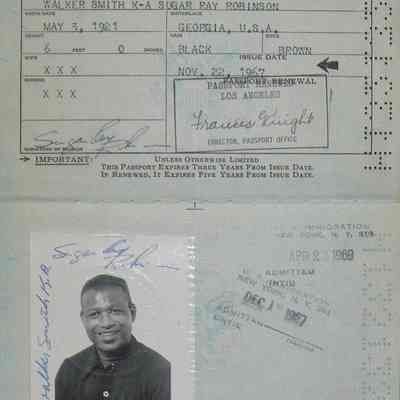 WALKER SMITH K-A SUGAR RAY ROBINSON
BIRTH DATE BIRTHPLACE
MAY 3, 1921 GEORGIA, U.S.A.
HEIGHT HAIR EYES
6 FEET 0 INCHES BLACK BROWN
WIFE ISSUE DATE
X X X NOV. 22, 1967
MINORS PASSPORT RENEWAL
X X X
PASSPORT RENEWED
LOS ANGELES
Frances Knight
DIRECTOR, PASSPORT OFFICE
Sugar Ray Robinson
SIGNATURE OF BEARER
IMPORTANT: UNLESS OTHERWISE LIMITED
THIS PASSPORT EXPIRES THREE YEARS FROM ISSUE DATE.
IF RENEWED, IT EXPIRES FIVE YEARS FROM ISSUE DATE.
IMMIGRATION
NEW YORK, N. Y.
Sugar Ray Robinson
APR 23 1969
ADMITTED
UNTIL
DEC 1 1967
ADMITTED
UNTIL
Walker Smith